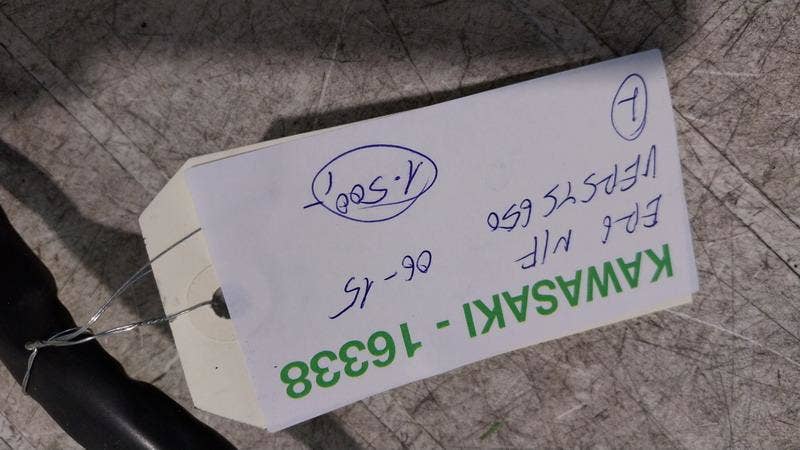 KAWASAKI - 16338
ER6 N/F 06-15
VERSYS 650
1.500,-